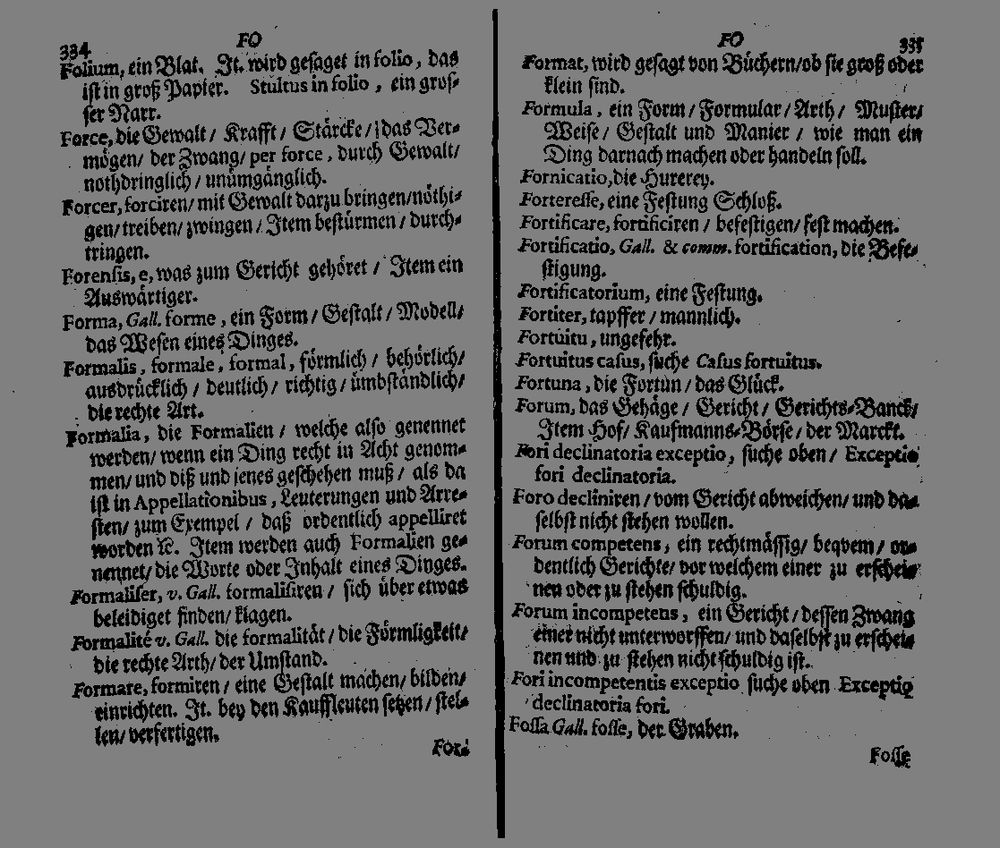 334
FO
Folium, ein Blat. It. wird gesaget in folio, das
ist in groß Papier. Stultus in folio, ein gros-
ser Narr.
Force, die Gewalt/ Krafft/ Stärcke/ das Ver-
mögen/ der Zwang/ per force, durch Gewalt/
nothdringlich/ unümgänglich.
Forcer, forciren/ mit Gewalt darzu bringen/ nöthi-
gen/ treiben/ zwingen/ Item bestürmen/ durch-
tringen.
Forensis, e, was zum Gericht gehöret/ Item ein
Auswärtiger.
Forma, Gall. forme, ein Form/ Gestalt/ Modell/
das Wesen eines Dinges.
Formalis, formale, formal, förmlich/ behörlich/
ausdrücklich/ deutlich/ richtig/ ümbständlich/
die rechte Art.
Formalia, die Formalien/ welche also genennet
werden/ wenn ein Ding recht in Acht genom-
men/ und diß und jenes geschehen muß/ als da
ist in Appellationibus, Leuterungen und Arre-
sten/ zum Exempel/ daß ordentlich appelliret
worden ꝛc. Item werden auch Formalien ge-
nennet/ die Worte oder Inhalt eines Dinges.
Formaliser, v. Gall. formalisiren/ sich über etwas
beleidiget finden/ klagen.
Formalité v. Gall. die formalität/ die Förmligkeit/
die rechte Arth/ der Umstand.
Formare, formiren/ eine Gestalt machen/ bilden/
einrichten. It. bey den Kauffleuten setzen/ stel-
len/ verfertigen.
FO
335
Format, wird gesagt von Büchern/ ob sie groß oder
klein sind.
Formula, ein Form/ Formular/ Arth/ Muster/
Weise/ Gestalt und Manier/ wie man ein
Ding darnach machen oder handeln soll.
Fornicatio, die Hurerey.
Forteresse, eine Festung Schloß.
Fortificare, fortificiren/ befestigen/ fest machen.
Fortificatio, Gall. & comm. fortification, die Befe-
stigung.
Fortificatorium, eine Festung.
Fortiter, tapffer/ mannlich.
Fortuitu, ungefehr.
Fortuitus casus, suche Casus fortuitus.
Fortuna, die Fortun/ das Glück.
Forum, das Gehäge/ Gericht/ Gerichts-Banck/
Item Hof/ Kaufmanns-Börse/ der Marckt.
Fori declinatoria exceptio, suche oben/ Exceptio
fori declinatoria.
Foro decliniren/ vom Gericht abweichen/ und da-
selbst nicht stehen wollen.
Forum competens, ein rechtmässig/ beqvem/ or-
dentlich Gerichte/ vor welchem einer zu erschei-
nen oder zu stehen schuldig.
Forum incompetens, ein Gericht/ dessen Zwang
einer nicht unterworffen/ und daselbst zu erschei-
nen und zu stehen nicht schuldig ist.
Fori incompetentis exceptio suche oben Exceptio
declinatoria fori.
Fossa Gall. fosse, der Graben.
Fosse